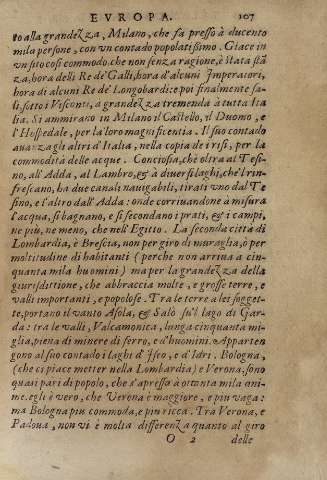 EVROPA. 107
to alla grandezza, Milano, che fa presso à ducento
mila persone, con vn contado popolatissimo. Giace in
vn sito così commodo, che non senza ragione, è stata stā
za, hora delli Re de' Galli, hora d'alcuni Imperatori,
hora di alcuni Re de' Longobardi: e poi finalmente sa-
lì, sotto i Visconti, a grandezza tremenda à tutta Ita
lia. Si ammirano in Milano il Castello, il Duomo, e
l'Hospedale, per la loro magnificentia. Il suo contado
auanza gli altri d'Italia, nella copia de i risi, per la
commodità delle acque. Conciosia, chè oltra al Tesi-
no, all'Adda, al Lambro, & à diuersi laghi, che l'rin-
frescano, ha due canali nauigabili, tirati vno dal Te
sino, e l'altro dall'Adda: onde corriuandone a misura
l'acqua, si bagnano, e si fecondano i prati, & i campi,
ne piu, ne meno, che nell'Egitto. La seconda città di
Lombardia, è Brescia, non per giro di muraglia, ò per
moltitudine di habitanti (perche non arriua a cin-
quanta mila huomini) ma per la grandezza della
giurisdittione, che abbraccia molte, e grosse terre, e
valli importanti, e popolose. Tra le terre a lei sogget-
te, portano il vanto Asola, & Salò su'l lago di Gar-
da: tra le valli, Valcamonica, lunga cinquanta mi-
glia, piena di minere di ferro, e d'huomini. Apparten
gono al suo contado i laghi d'Iseo, e d'Idri. Bologna,
(che ci piace metter nella Lombardia) e Verona, sono
quasi pari di popolo, che s'apressa à ottanta mila ani-
me. egli è vero, che Verona è maggiore, e piu vaga:
ma Bologna piu commoda, e piu ricca. Tra Verona, e
Padoua, non vi è molta differenza quanto al giro
O 2 delle